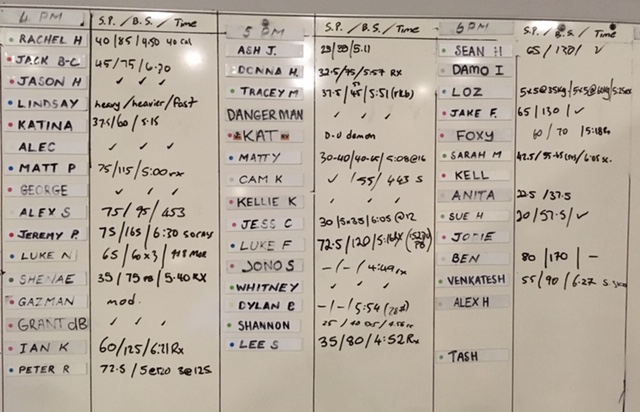 4 PM S.P. / B.S. / Time
RACHEL H 40/85/4:50 40 cal
JACK B-C 45/75/6:30
JASON H ✓ ✓ ✓
LINDSAY heavy/heavier/fast
KATINA 37.5/60/5:15
ALEC ✓ ✓ ✓
MATT P 75/115/5:00 rx
GEORGE ✓ ✓ ✓
ALEX S 75/95/453
JEREMY P. 75/165/6:30
LUKE N 65/60x3/
SHENAE 35/75/5:40 RX
GAZMAN mod.
GRANT dB ✓ ✓ ✓
IAN K 60/125/6:21 Rx
PETER R 72.5/
5 PM S.P. / B.S. / Time
ASH J. /5:11
DONNA H. 32.5/75/5:57 RX
TRACEY M 37.5/45/5:51
DANGERMAN ✓ ✓ ✓
KAT D.U demon
MATTY 30-40/40-65/5:08@16
CAM K ✓/55/443 S
KELLIE K ✓ ✓ ✓
JESS C 30/5x35/6:05 @12
LUKE F 72.5/120/
JONO S -/-/4:49 rx
WHITNEY ✓ ✓ ✓
DYLAN B -/-/5:54
SHANNON
LEE S 35/80/4:52 Rx
6 PM S.P. / B.S. / Time
SEAN H 65/130/✓
DAMO I
LOZ 5x5@35kg/5x5@60kg/
JAKE F. 65/130/✓
FOXY 60/70
SARAH M
KELL
ANITA 22.5/37.5
SUE H 20/57.5/✓
JODIE
BEN 80/170/-
VENKATESH 55/90/6:27
ALEX H
TASH